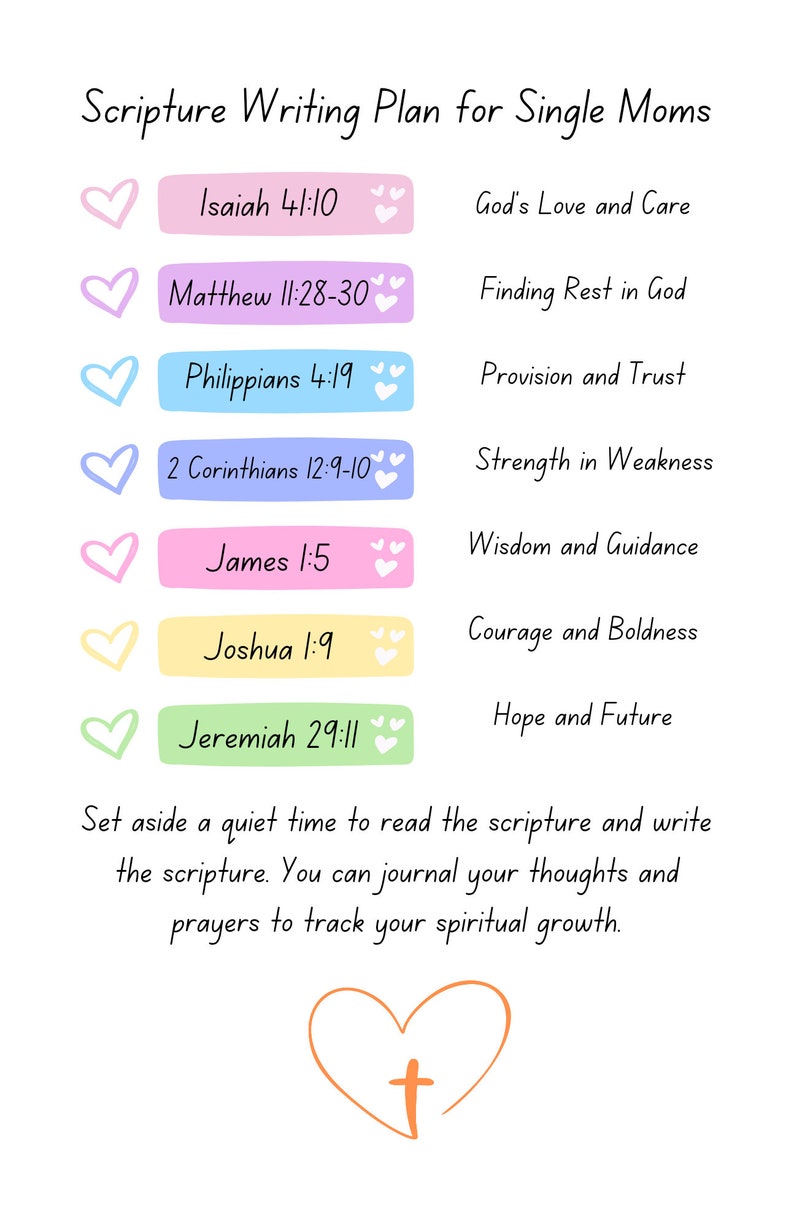 Scripture Writing Plan for Single Moms
Isaiah 41:10
God's Love and Care
Matthew 11:28-30
Finding Rest in God
Philippians 4:19
Provision and Trust
2 Corinthians 12:9-10
Strength in Weakness
James 1:5
Wisdom and Guidance
Joshua 1:9
Courage and Boldness
Jeremiah 29:11
Hope and Future
Set aside a quiet time to read the scripture and write
the scripture. You can journal your thoughts and
prayers to track your spiritual growth.